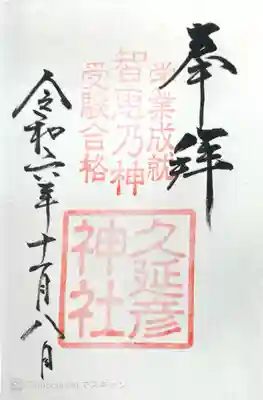 奉拝
学業成就
智恵乃神
受験合格
久延彦
神社
令和六年十一月八日